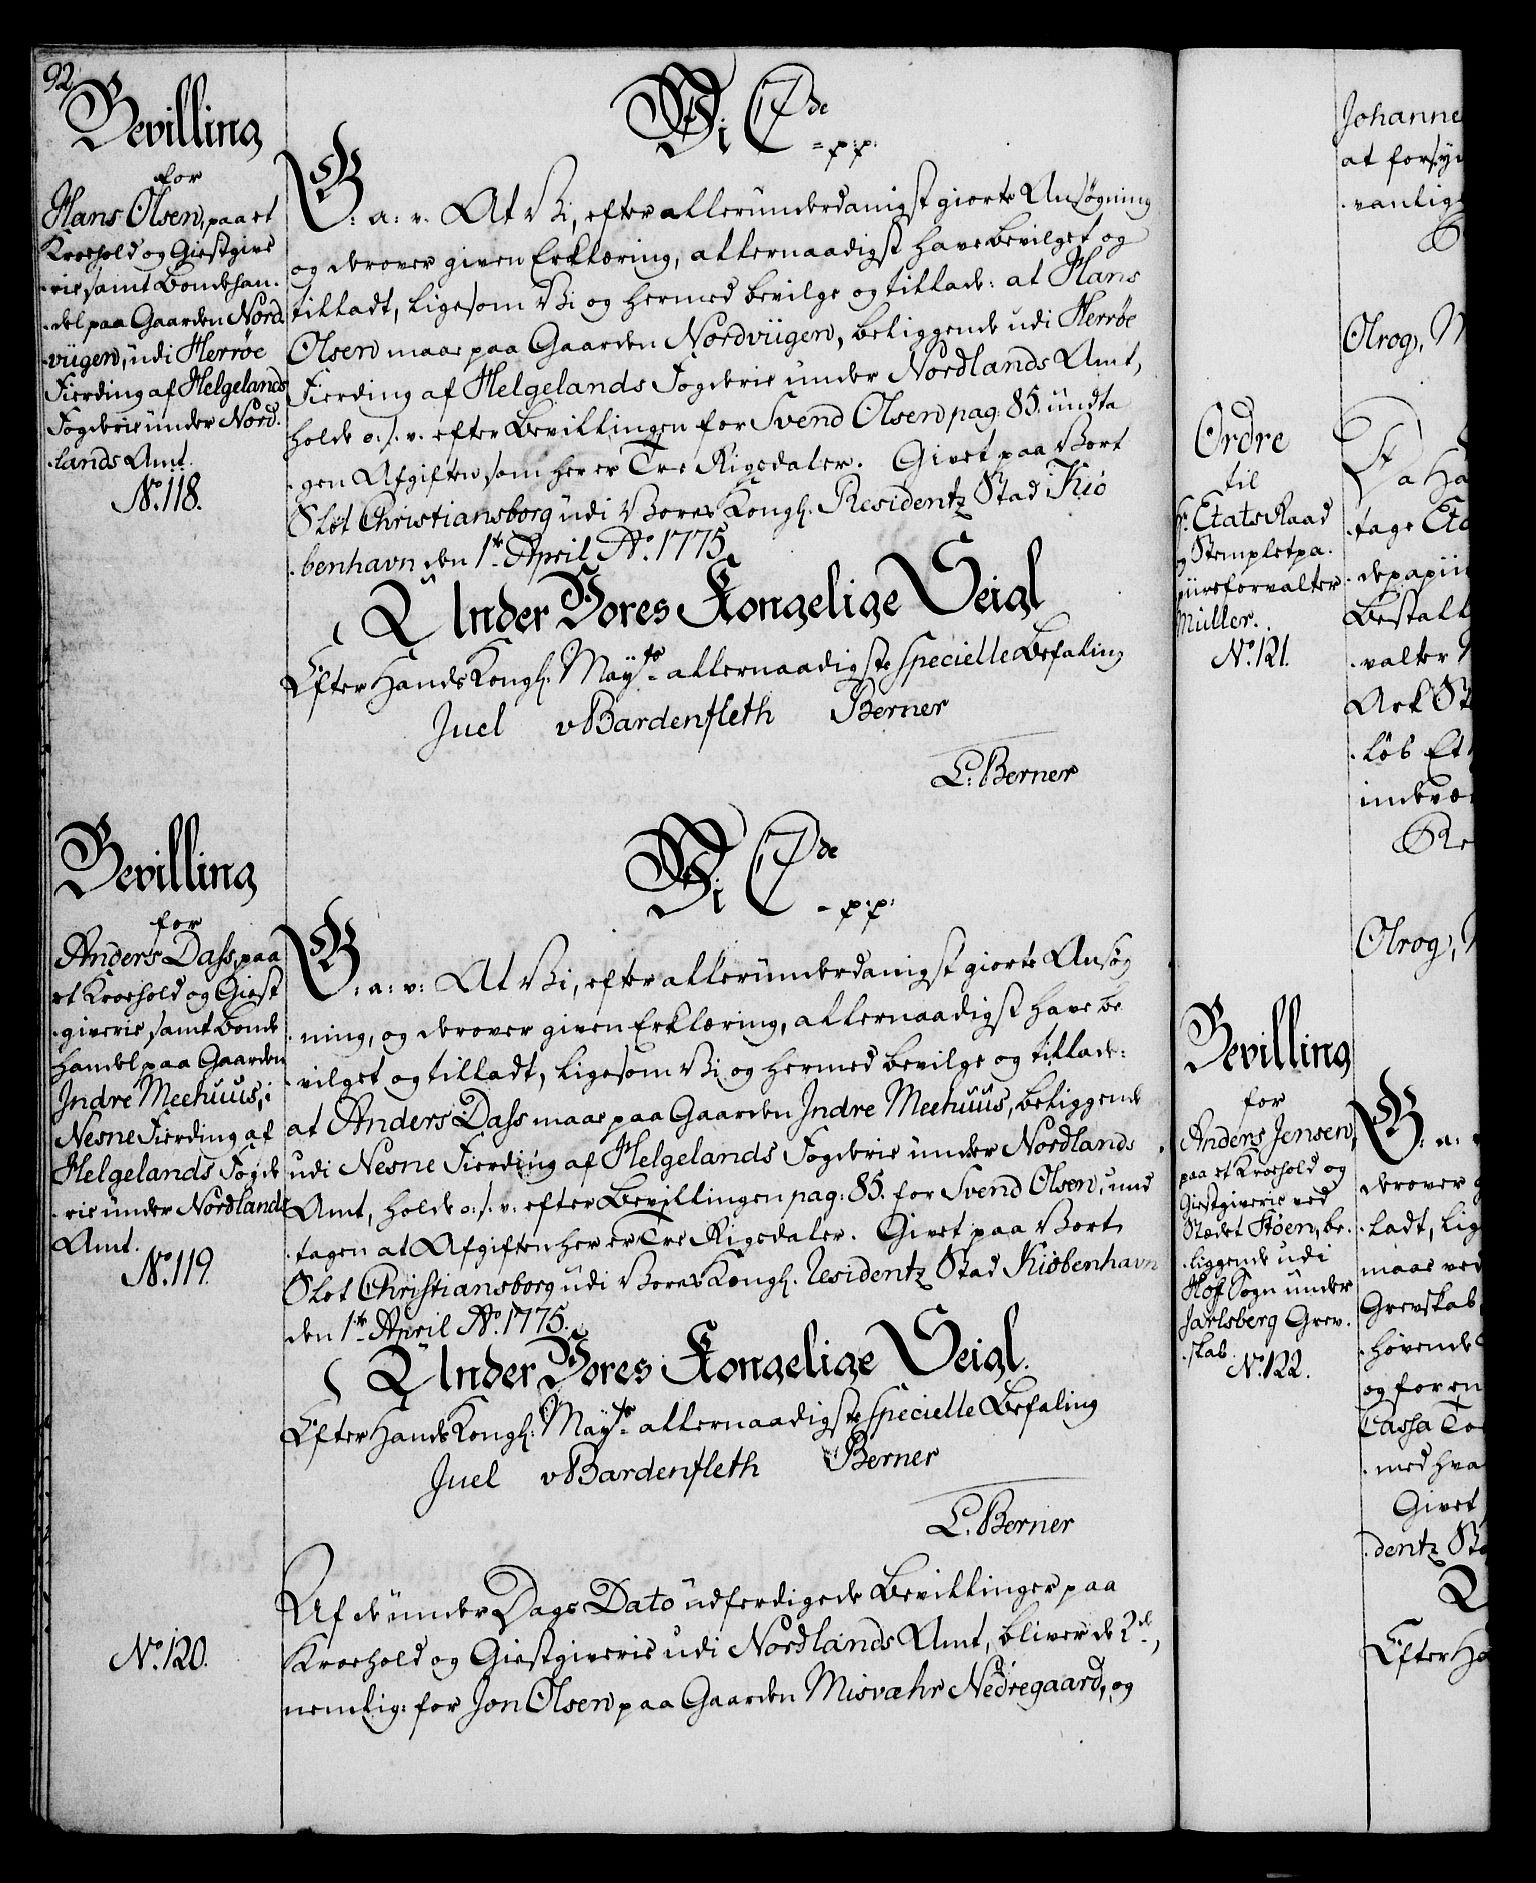 92
Bevilling
for
Hans Olsen, paa et
Kroehold og Giestgive
-rie samt Bondehan-
-del paa Gaarden Nord-
-viigen, udi Herrøe
Fierding af Helgelands
Fogderie under Nord-
-lands Amt.
No. 118.
Vi C 7de
- p: p:
G: a: v. At Vi, efter allerunderdanigst giorte Ansøgning
og derover given Erklæring, allernaadigst have bevilget og
tilladt, ligesom Vi og hermed bevilge og tillade: at Hans
Olsen maae paa Gaarden Nordviigen, beliggende udi Herrøe
Fierding af Helgelands Fogderie under Nordlands Amt,
holde o: s: v. efter Bevillingen for Svend Olsen pag: 85. undta
-gen Afgiften som her er Tre Rigsdaler. Givet paa Vort
Slot Christiansborg udi Vores Kongl: Residentz Stad Kiø
-benhavn den 1te April Ao. 1775.
Under Vores Kongelige Seigl
Efter Hands Kongl: Mayts allernaadigste specielle Befaling
Juel v Bardenfleth Berner
L: Berner
Bevilling
for
Anders Dass, paa
et Kroehold og Giest
-giverie, samt Bonde
handel paa Gaarden
Indre Meehuus, i
Nesne Fierding af
Helgelands Fogde
-rie under Nordlands
Amt.
No. 119.
Vi C 7de
- p: p:
G: a: v: At Vi, efter allerunderdanigst giorte Ansøg
-ning, og derover given Erklæring, allernaadigst have be
-vilget og tilladt, ligesom Vi og hermed bevilge og tillade:
at Anders Dass maae paa Gaarden Indre Meehuus, beliggende
udi Nesne Fierding af Helgelands Fogderie under Nordlands
Amt, holde o: s: v: efter Bevillingen pag: 85. for Svend Olsen, und
-tagen at Afgiften her er Tre Rigsdaler. Givet paa Vort
Slot Christiansborg udi Vores Kongl: Residentz Stad Kiøbenhavn
den 1te April Ao. 1775.
Under Vores Kongelige Seigl.
Efter Hands Kongl: Mayts allernaadigste specielle Befaling
Juel v Bardenfleth Berner
L. Berner
No. 120.
Af de under Dags Dato udferdigede Bevillinger paa
Kroehold og Giestgiverie udi Nordlands Amt, bliver de 2de,
nemlig: for Jon Olsen paa Gaarden Misvæhr Nedregaard, og
Ordre
til
Hr. Etats Raad
og Stemplet pa-
piirsforvalter
Müller.
No. 121.
Bevilling
for
Anders Jensen,
paa et Kroehold og
Giestgiverie ved
Stædet Støen, be-
-liggende udi
Hof Sogn under
Jarlsberg Grev-
-skab
No. 122.
Johanne
at forsyn
-vanlig
Olrog,
Da Ha
-tage Eta
-depapii
Bestall
-valter
Ark St
-løb Et
indevæ
Olrog,
G: a: v
derover
-ladt, lig
maae ved
Grevskab
-hørende
og for en
Cassa To
-med hva
Givet
-dentz Sta
Efter Ha